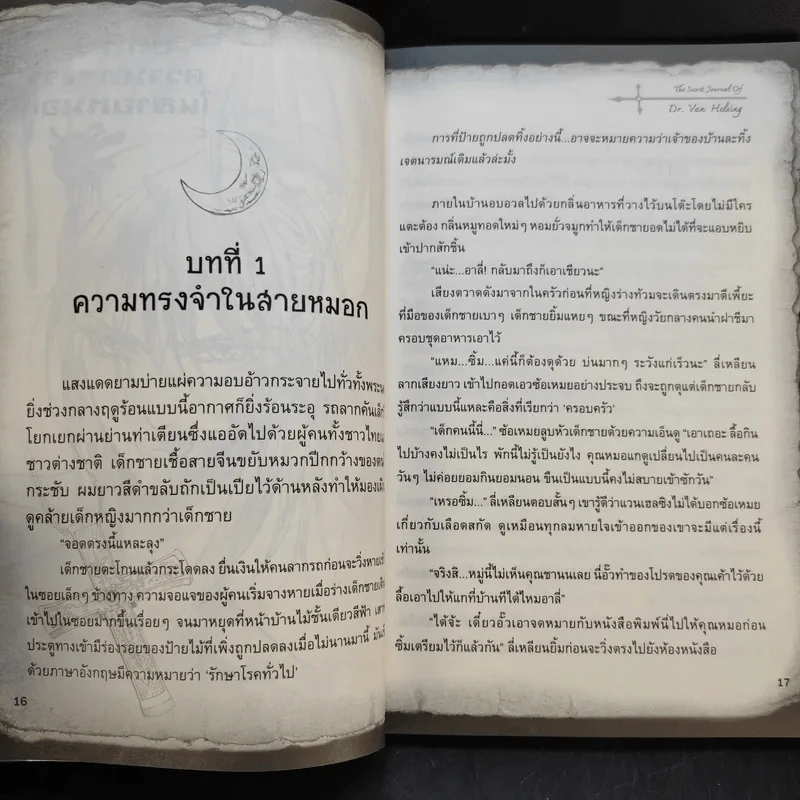 บทที่ 1
ความทรงจำในสายหมอก
แสงแดดยามบ่ายแผ่ความอบอ้าวกระจายไปทั่วทั้งพระน
ยิ่งช่วงกลางฤดูร้อนแบบนี้อากาศก็ยิ่งร้อนระอุ รถลากคันเล็ก
โยกเยกผ่านย่านท่าเตียนซึ่งแออัดไปด้วยผู้คนทั้งชาวไทยแ
ชาวต่างชาติ เด็กชายเชื้อสายจีนขยับหมวกปีกกว้างของตน
กระชับ ผมยาวสีดำขลับถักเป็นเปียไว้ด้านหลังทำให้มองแล้ว
ดูคล้ายเด็กหญิงมากกว่าเด็กชาย
“จอดตรงนี้แหละลุง”
เด็กชายตะโกนแล้วกระโดดลง ยื่นเงินให้คนลากรถก่อนจะวิ่งหาย
ในซอยเล็กๆ ข้างทาง ความจอแจของผู้คนเริ่มจางหายเมื่อร่างเด็กชาย
เข้าไปในซอยมากขึ้นเรื่อยๆ จนมาหยุดที่หน้าบ้านไม้ชั้นเดียวสีฟ้า
ประตูทางเข้ามีร่องรอยของป้ายไม้ที่เพิ่งถูกปลดลงเมื่อไม่นานมานี้
ด้วยภาษาอังกฤษมีความหมายว่า ‘รักษาโรคทั่วไป’
16
The Secret Journal Of
Dr. Van Helsing
การที่ป้ายถูกปลดทิ้งอย่างนี้...อาจจะหมายความว่าเจ้าของบ้านละทิ้ง
เจตนารมณ์เดิมแล้วล่ะมั้ง
ภายในบ้านอบอวลไปด้วยกลิ่นอาหารที่วางไว้บนโต๊ะโดยไม่มีใคร
แตะต้อง กลิ่นหมูทอดใหม่ๆ หอมยั่วจมูกทำให้เด็กชายอดไม่ได้ที่จะแอบหยิบ
เข้าปากสักชิ้น
“แน่ะ...อาลี่! กลับมาถึงก็เอาเชียวนะ”
เสียงตวาดดังมาจากในครัวก่อนที่หญิงร่างท้วมจะเดินตรงมาตีเพี้ยะ
ที่มือของเด็กชายเบาๆ เด็กชายยิ้มแหยๆ ขณะที่หญิงวัยกลางคนนำฝาชีมา
ครอบชุดอาหารเอาไว้
“แหม...ซิ้ม...แค่นี้ก็ต้องดุด้วย บ่นมากๆ ระวังแก่เร็วนะ” ลี่เหลียน
ลากเสียงยาว เข้าไปกอดเอวซ้อเหมยอย่างประจบ ถึงจะถูกดุแต่เด็กชายกลับ
รู้สึกว่าแบบนี้แหละคือสิ่งที่เรียกว่า ‘ครอบครัว’
“เด็กคนนี้นี่...” ซ้อเหมยลูบหัวเด็กชายด้วยความเอ็นดู “เอาเถอะ ลื้อกิน
ไปบ้างคงไม่เป็นไร พักนี้ไม่รู้เป็นยังไง คุณหมอแกดูเปลี่ยนไปเป็นคนละคน
วันๆ ไม่ค่อยยอมกินยอมนอน ขืนเป็นแบบนี้คงไม่สบายเข้าซักวัน”
“เหรอซิ้ม...” ลี่เหลียนตอบสั้นๆ เขารู้ดีว่าแวนเฮลซิงไม่ได้บอกซ้อเหมย
เกี่ยวกับเลือดสกัด ดูเหมือนทุกลมหายใจเข้าออกของเขาจะมีแต่เรื่องนี้
เท่านั้น
“จริงสิ...หมู่นี้ไม่เห็นคุณชานนเลย นี่อั๊วทำของโปรดของคุณเค้าไว้ด้วย
ลื้อเอาไปให้แกที่บ้านทีได้ไหมอาลี่”
“ได้จ้ะ เดี๋ยวอั๊วเอาจดหมายกับหนังสือพิมพ์นี่ไปให้คุณหมอก่อน
ซิ้มเตรียมไว้ก็แล้วกัน” ลี่เหลียนยิ้มก่อนจะวิ่งตรงไปยังห้องหนังสือ
17